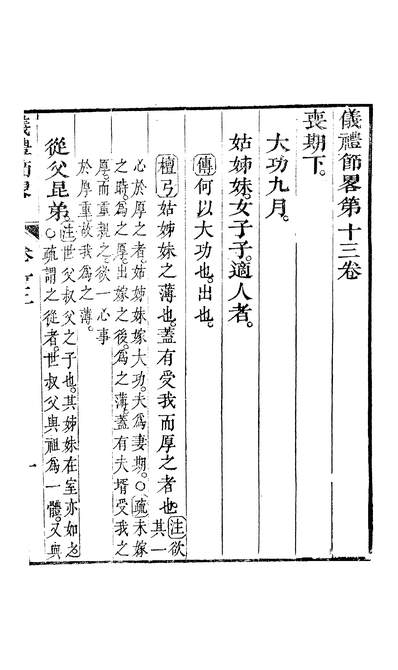 儀禮節畧第十三卷
喪期下。
大功九月。
姑姊妹。女子子。適人者。
傳何以大功也。出也。
檀弓姑姊妹之薄也。蓋有受我而厚之者也。注欲其一
心於厚之者。姑姊妹嫁大功。夫爲妻期。○疏未嫁
之時。爲之厚。出嫁之後。爲之薄。蓋有夫壻受我之
厚。而重親之。欲一心事
於厚重。故我爲之薄。
從父昆弟。注世父叔父之子也。其姊妹在室亦如之
○疏謂之從者。世叔父與祖爲一體。又與
儀禮節畧 卷十三 一